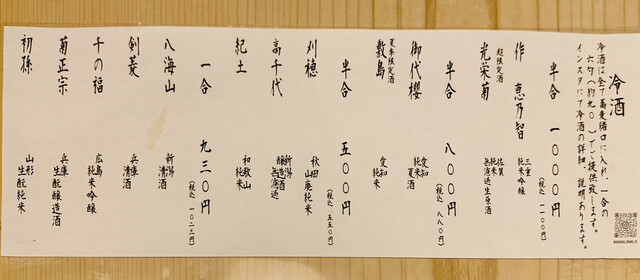 冷酒
冷酒は全て蕎麦猪口に入れ、一合の
六勺(約九〇)でご提供致します。
インスタにて冷酒の詳細、説明あります。
半合 一〇〇〇円(税込 一一〇〇円)
作 恵乃智 三重 純米吟醸
超限定酒
光栄菊 佐賀 純米 無濾過生原酒
半合 八〇〇円(税込 八八〇円)
御代櫻 愛知 純米 夏酒
夏季限定酒
敷島 愛知 純米
半合 五〇〇円(税込 五五〇円)
刈穂 秋田 山廃純米
高千代 新潟 醸造酒 無濾過
紀土 和歌山 純米
一合 九三〇円(税込 一〇二三円)
八海山 新潟 清酒
剣菱 兵庫 清酒
千の福 広島 純米吟醸
菊正宗 兵庫 生酛醸造酒
初孫 山形 生酛純米